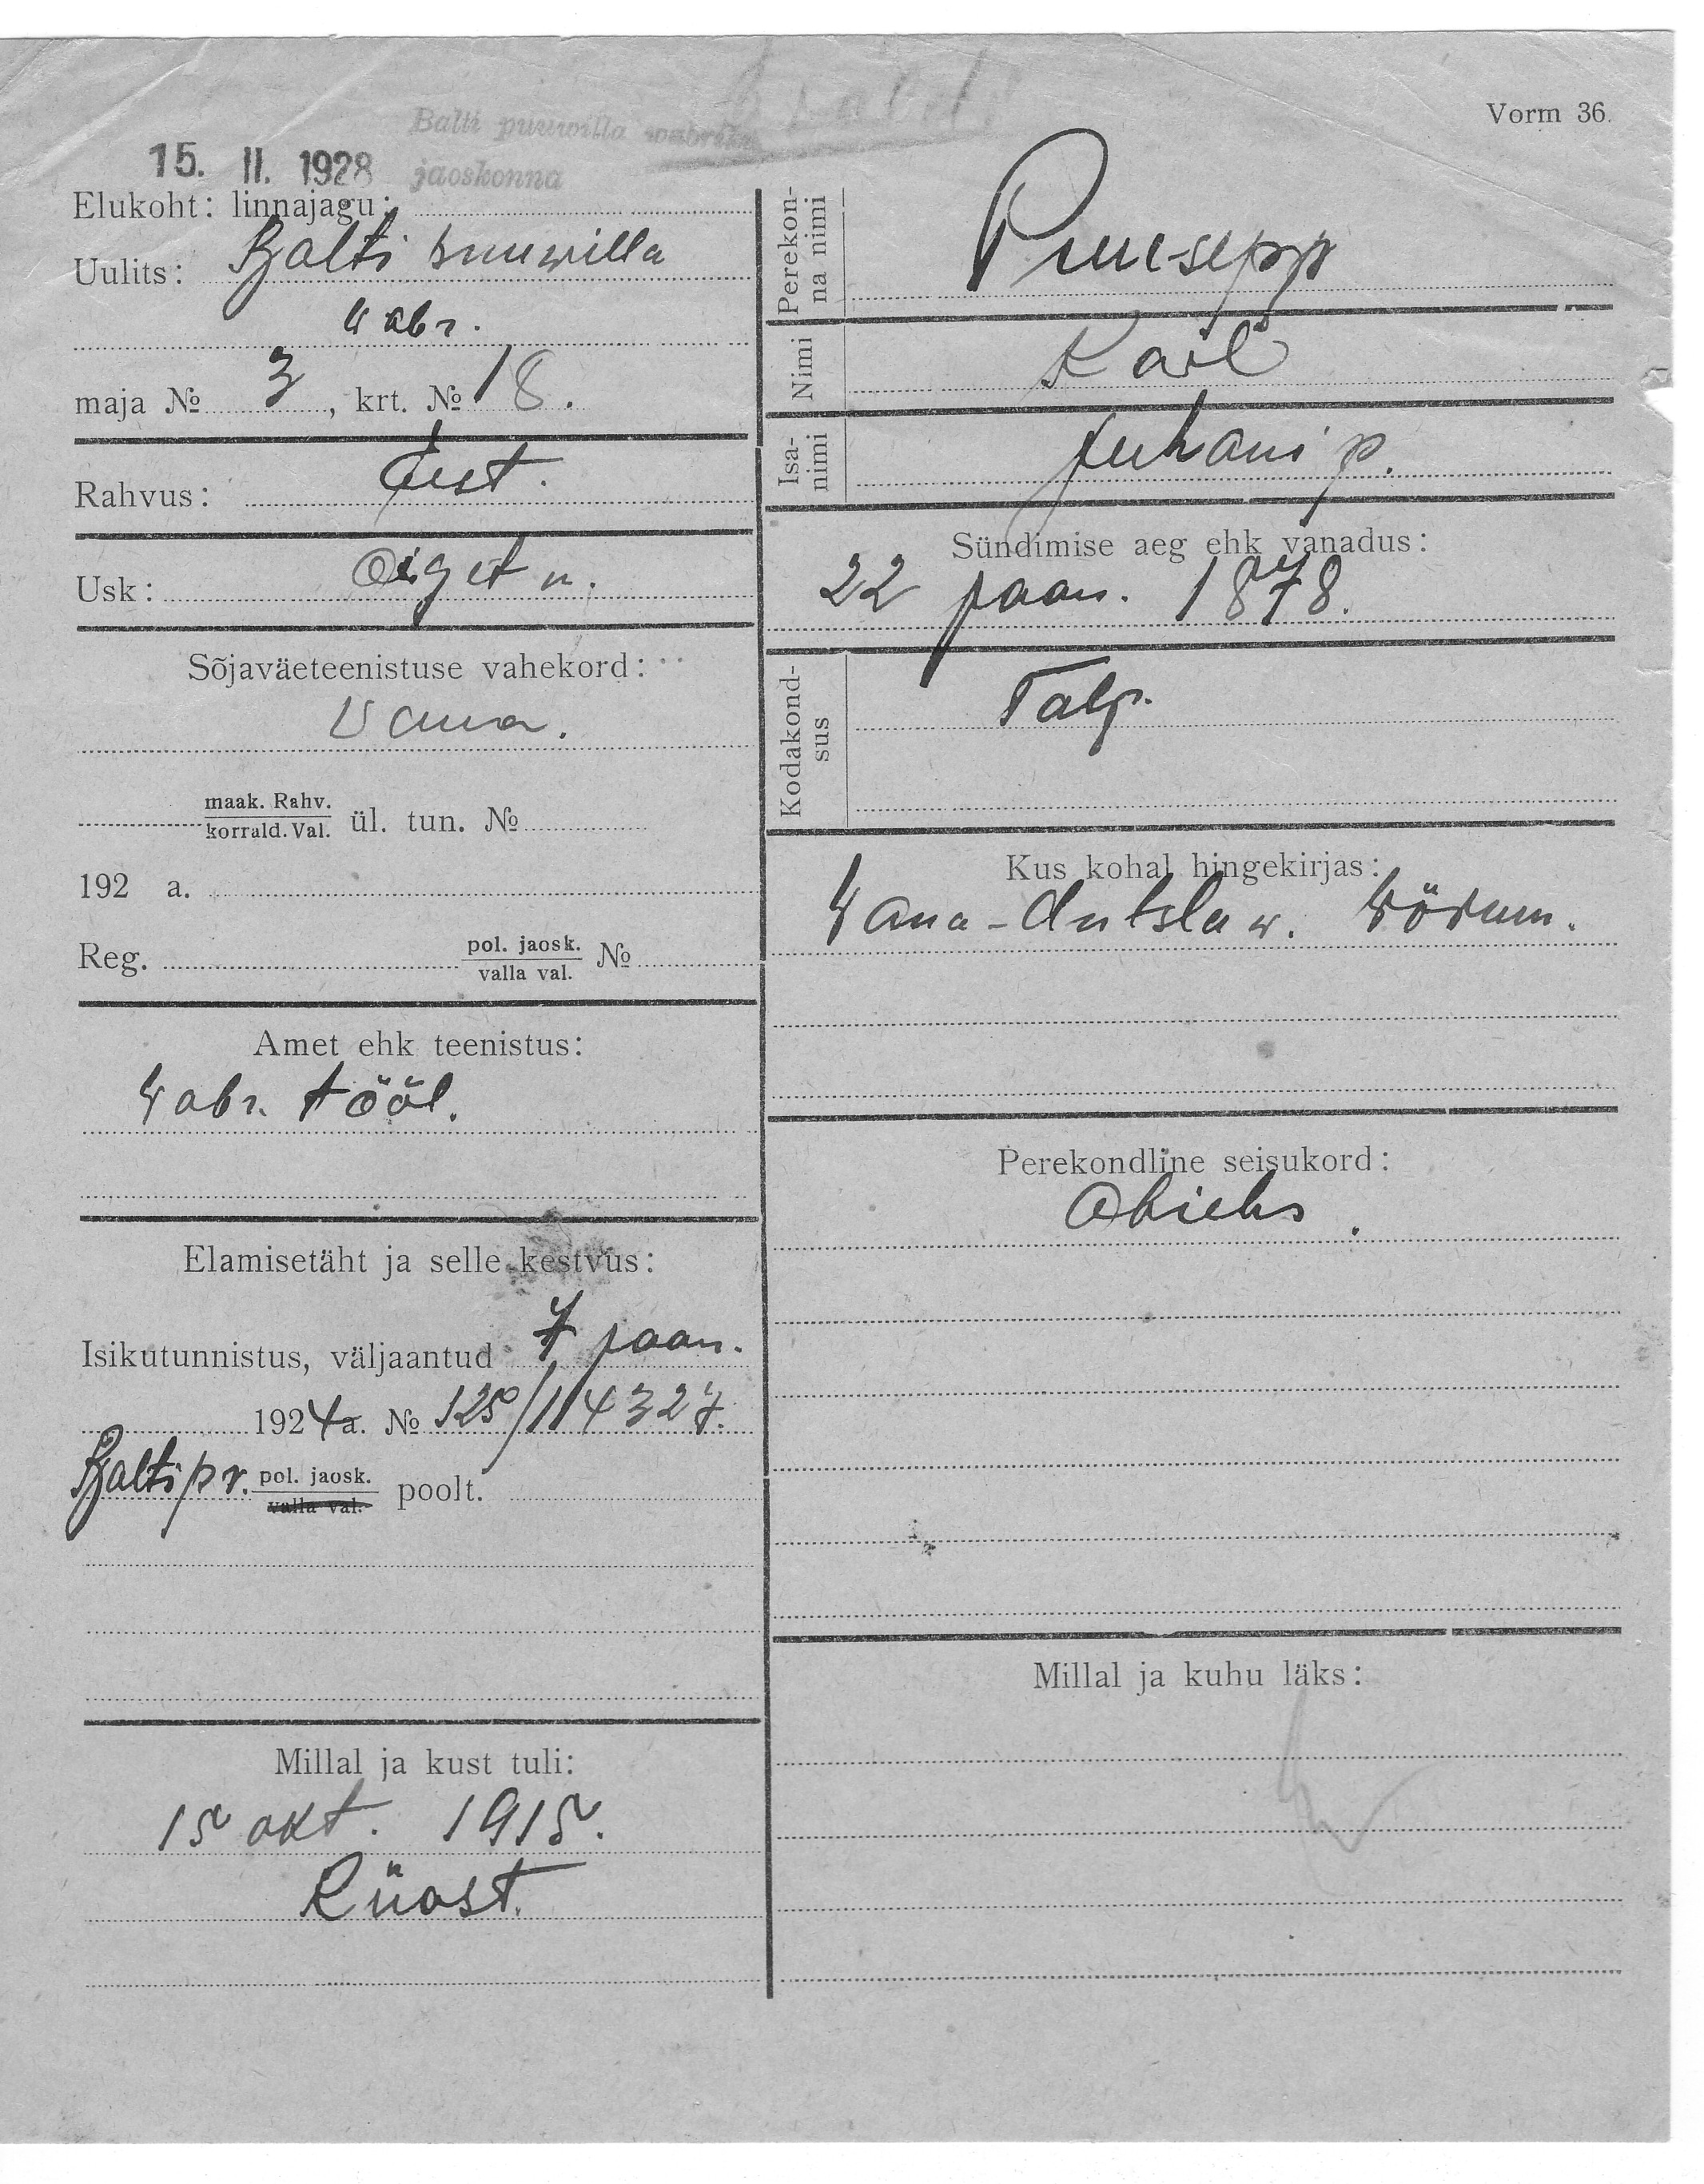 Vorm 36.
Balti puuwilla wabriku
jaoskonna
15. II. 1928
Elukoht: linnajagu:
Uulits: Balti puuwilla
wabr.
maja № 3, krt. № 18.
Rahvus: Eest.
Usk: Õiget u.
Sõjaväeteenistuse vahekord:
Vana.
maak. Rahv.
korrald. Val. ül. tun. №
192 a.
Reg. pol. jaosk.
valla val. №
Amet ehk teenistus:
Wabr. tööl.
Elamisetäht ja selle kestvus:
Isikutunnistus, väljaantud 7 jaan.
1924 a. № 125/114327.
Balti pr. pol. jaosk.
valla val. poolt.
Millal ja kust tuli:
15 okt. 1915.
Rüast.
Perekon-
na nimi
Puusepp
Nimi Karl
Isa-
nimi
Juhani p.
Sündimise aeg ehk vanadus:
22 jaan. 1878.
Kodakond-
sus
Kus kohal hingekirjas:
Wana-Antsla w. Wõrum.
Perekondline seisukord:
Abielus.
Millal ja kuhu läks: